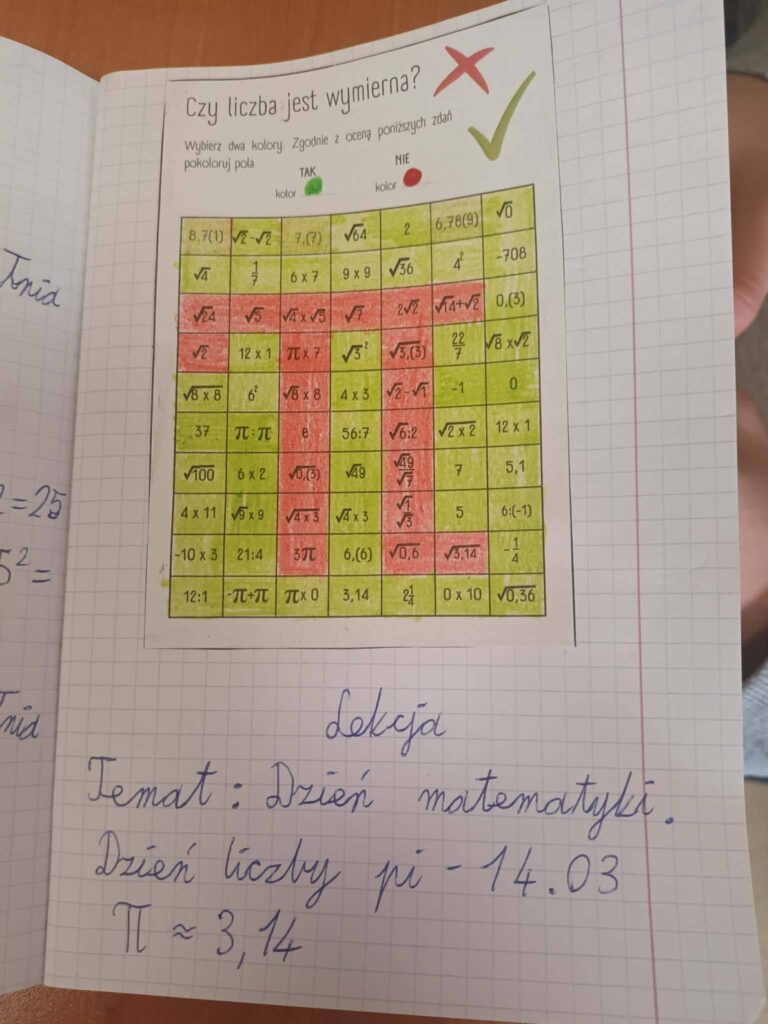 Czy liczba jest wymierna?
Wybierz dwa kolory. Zgodnie z oceną poniższych zdań
pokoloruj pola.
TAK NIE
kolor kolor
8,7(1) √2-√2 7,(7) √64 2 6,78(9) √0
√4 1/7 6 x 7 9 x 9 √36 4² -708
√24 √5 √4 x √5 √7 2√2 √14+√2 0,(3)
√2 12 x 1 π x 7 √3² √3,(3) 22/7 √8 x √2
√8 x 8 6² √8 x 8 4 x 3 √2-√1 -1 0
37 π:π e 56:7 √6:2 √2 x 2 12 x 1
√100 6 x 2 √0,(3) √49 √49/√7 7 5,1
4 x 11 √9 x 9 √4 x 3 √4 x 3 √1/√3 5 6:(-1)
-10 x 3 21:4 3π 6,(6) √0,6 √3,14 -1/4
12:1 -π+π π x 0 3,14 2 1/4 0 x 10 √0,36
Lekcja
Temat: Dzień matematyki.
Dzień liczby pi - 14.03
π ≈ 3,14
=25
5²=